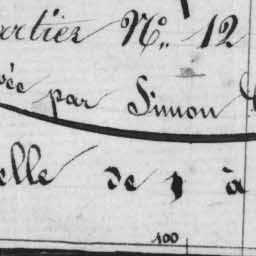 artier No. 12
vée par Simon
elle de 1 à
100